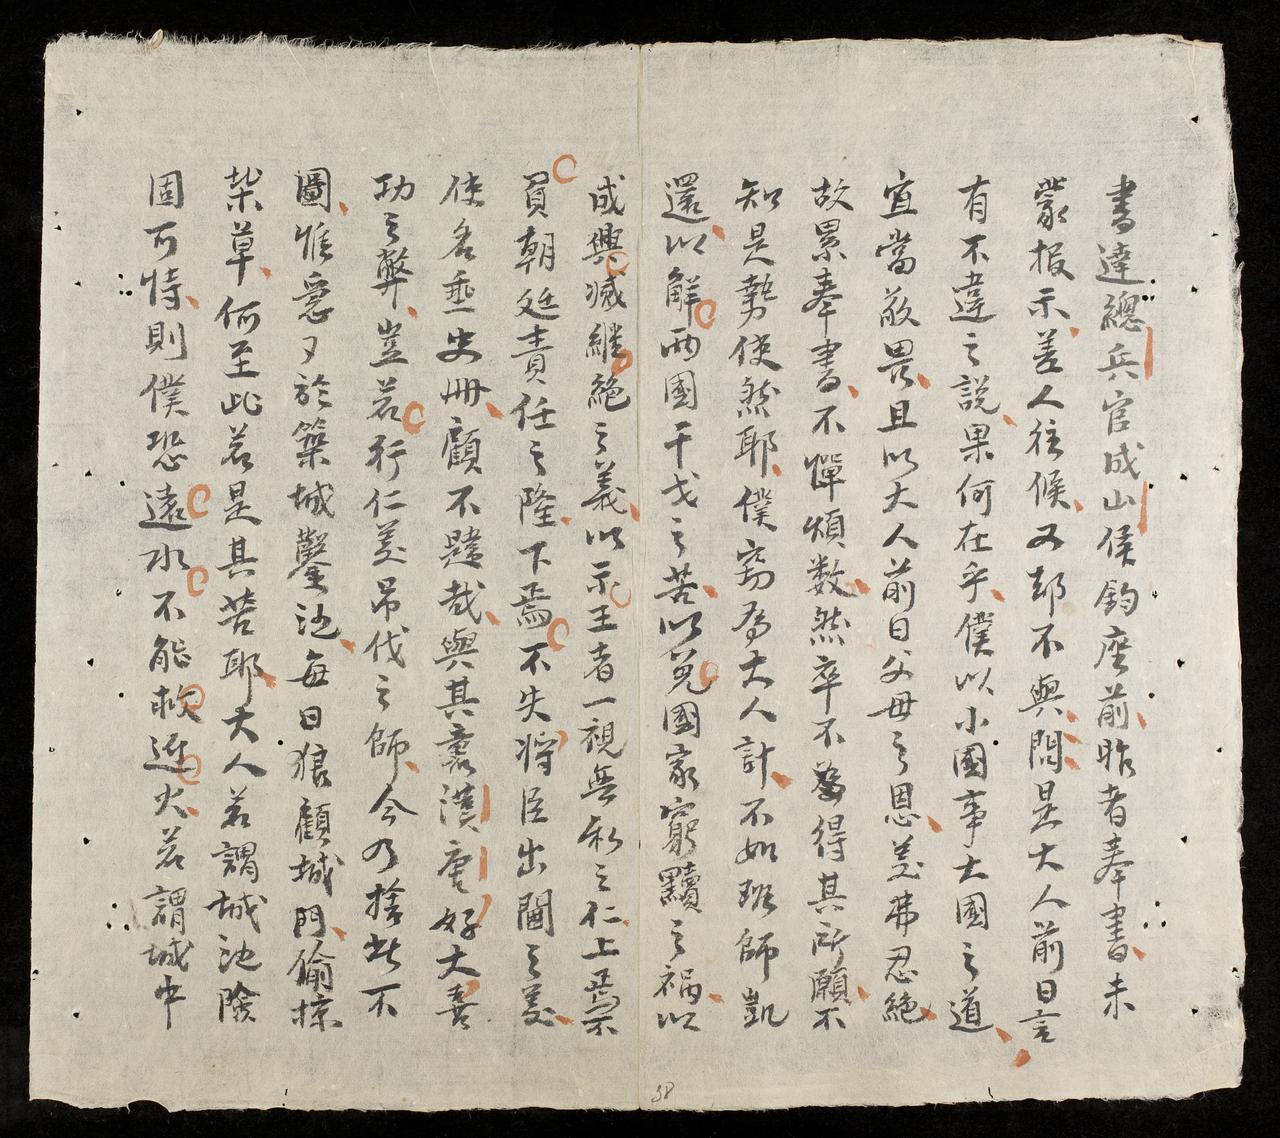 書達總兵官成山侯鈞座前昨者奉書未
蒙报示差人往候又却不與問是大人前日言
有不違之說果何在乎僕以小國事大國之道
宜當敬畏且以大人前日父母之恩義弗忍絶
故累奉書不憚煩数然卒不獲得其所願不
知是勢使然耶僕窃為大人計不如班師凱
還以解两國干戈之苦以免國家窮黷之禍以
成興滅継絶之義以示王者一視無私之仁上焉不
負朝廷責任之隆下焉不失将臣出閫之義
使名垂史冊顧不韙哉與其襲漢唐好大喜
功之弊豈若行仁義吊伐之師今乃捨此不
圖惟急々於築城鑿池每日狼顧城門偷掠
柴草何至此若是其苦耶大人若謂城池險
固可恃則僕恐遠水不能救近火若謂城中
38